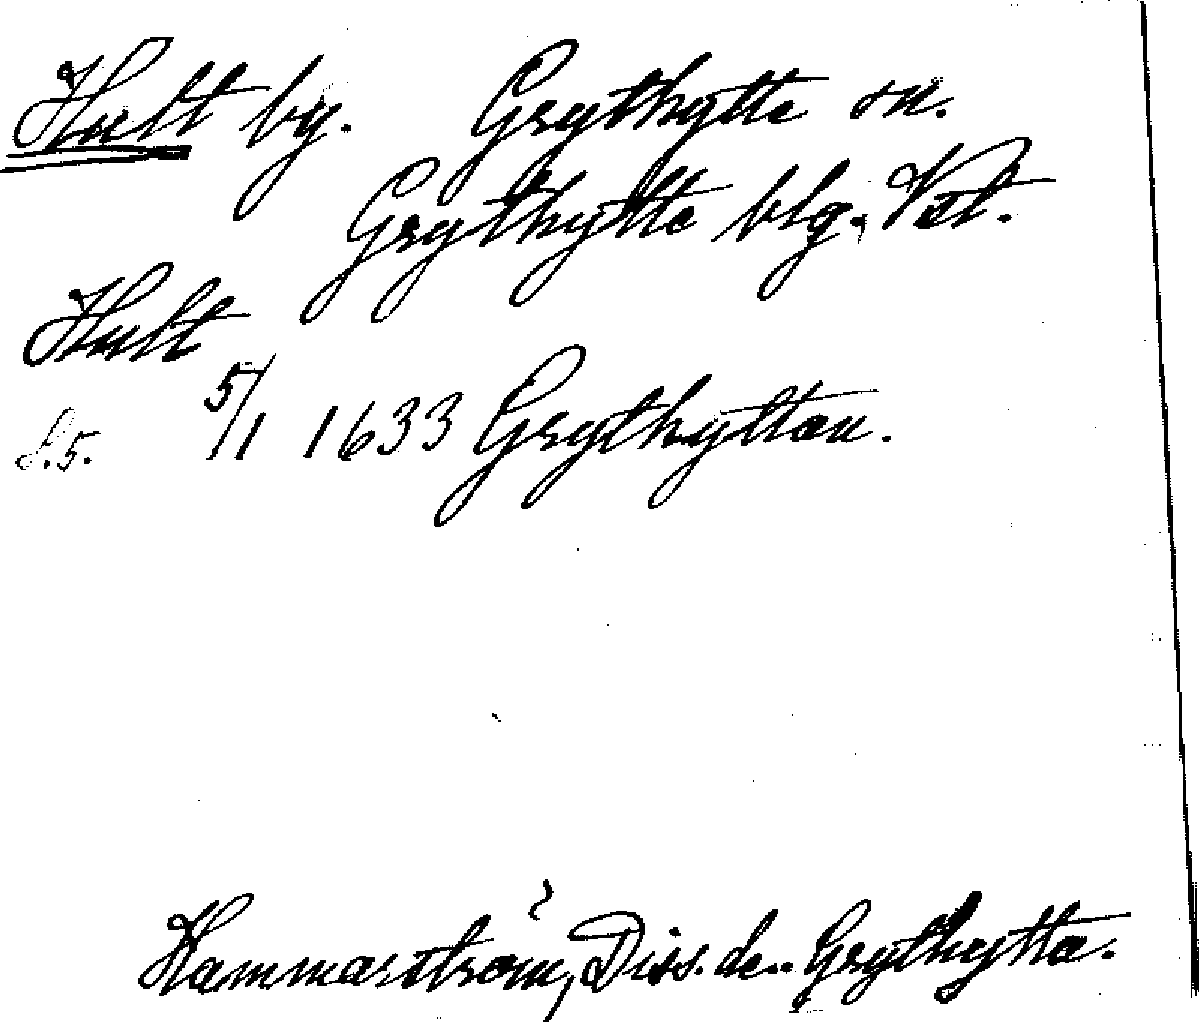 Hult by. Grythytte sn.
Grythytte blg. Vstl.
Hult
S. 5. 5/1 1633 Grythyttan.
Hammarström, Diss. de.. Grythytta.